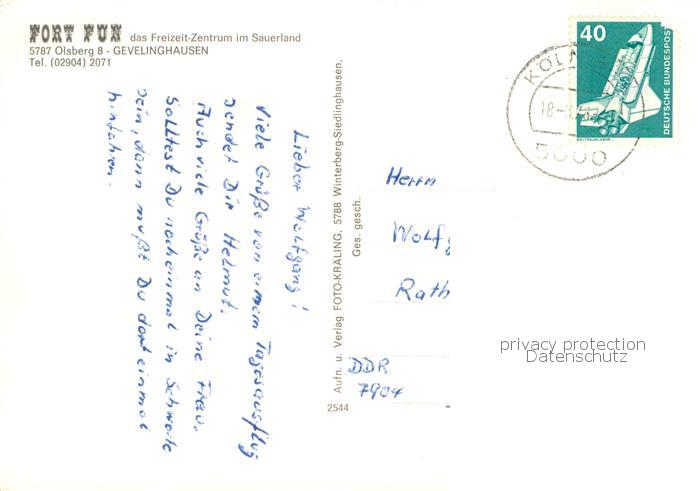 FORT FUN das Freizeit-Zentrum im Sauerland
5787 Olsberg 8 - GEVELINGHAUSEN
Tel. (02904) 2071
Lieber Wolfgang!
Viele Grüße von einem Tagesausflug
sendet Dir Helmut.
Auch viele Grüße an Deine Frau.
Solltest Du nocheinmal in
sein, dann mußt Du dort einmal
hinfahren.
Aufn. u. Verlag FOTO-KRÄLING, 5788 Winterberg-Siedlinghausen,
Ges. gesch.
2544
Herrn
Wolfg
Rath
DDR
7904
40
DEUTSCHE BUNDESPOST
WELTRAUMLABOR
KÖLN
18.-
5000
privacy protection
Datenschutz